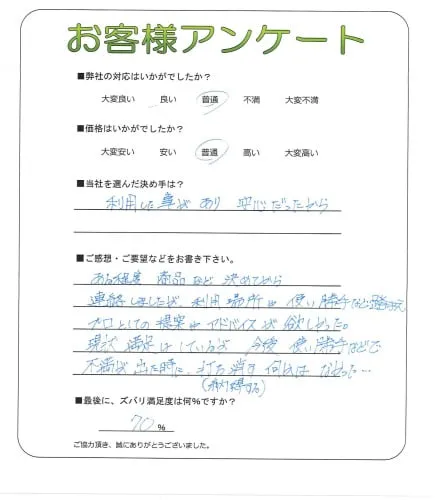 お客様アンケート
■弊社の対応はいかがでしたか？
大変良い 良い 普通 不満 大変不満
■価格はいかがでしたか？
大変安い 安い 普通 高い 大変高い
■当社を選んだ決め手は？
利用した事があり 安心だったから
■ご感想・ご要望などをお書き下さい。
ある程度 商品など 決めてから
連絡しましたが、利用場所や使い勝手など踏まえ
プロとしての提案やアドバイスが欲しかった。
現状 満足はしているが 今後 使い勝手などで
不満が出た時に、打ち消す 何かは なかった…
■最後に、ズバリ満足度は何%ですか？
70 %
ご協力頂き、誠にありがとうございました。